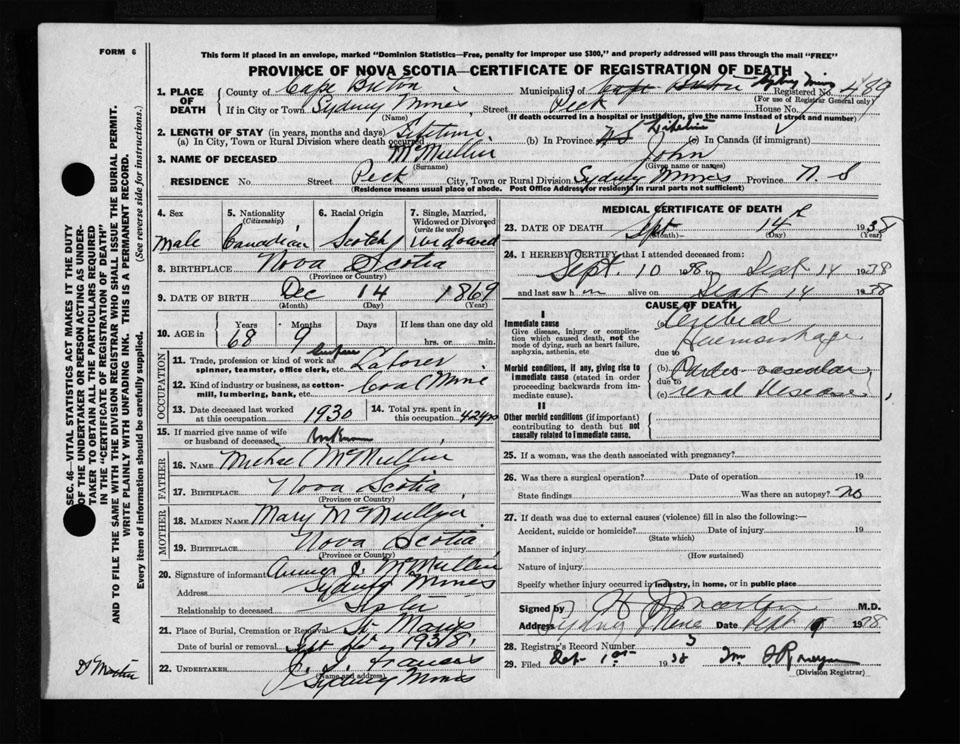 FORM 6
This form if placed in an envelope, marked "Dominion Statistics—Free, penalty for improper use $300," and properly addressed will pass through the mail "FREE"
PROVINCE OF NOVA SCOTIA—CERTIFICATE OF REGISTRATION OF DEATH
SEC. 46—VITAL STATISTICS ACT MAKES IT THE DUTY
OF THE UNDERTAKER OR PERSON ACTING AS UNDER-
TAKER TO OBTAIN ALL THE PARTICULARS REQUIRED
IN THE "CERTIFICATE OF REGISTRATION OF DEATH"
AND TO FILE THE SAME WITH THE DIVISION REGISTRAR WHO SHALL ISSUE THE BURIAL PERMIT.
WRITE PLAINLY WITH UNFADING INK. THIS IS A PERMANENT RECORD.
Every item of information should be carefully supplied. (See reverse side for instructions.)
1. PLACE OF DEATH County of Cape Breton Municipality of Cape Breton Sydney Mines Registered No. 489
(For use of Registrar General only)
If in City or Town Sydney Mines Street Peck House No.
(Name) (If death occurred in a hospital or institution, give the name instead of street and number)
2. LENGTH OF STAY (in years, months and days)
(a) In City, Town or Rural Division where death occurred Lifetime (b) In Province NS Lifetime (c) In Canada (if immigrant)
3. NAME OF DECEASED McMullin John
(Surname) (Given name or names)
RESIDENCE No. Street Peck City, Town or Rural Division Sydney Mines Province N. S
(Residence means usual place of abode. Post Office Address for residents in rural parts not sufficient)
4. Sex 5. Nationality (Citizenship) 6. Racial Origin 7. Single, Married, Widowed or Divorced (write the word)
Male Canadian Scotch Widowed
8. BIRTHPLACE Nova Scotia
(Province or Country)
9. DATE OF BIRTH Dec 14 1869
(Month) (Day) (Year)
10. AGE in Years Months Days If less than one day old
68 9 hrs. or min.
OCCUPATION
11. Trade, profession or kind of work as spinner, teamster, office clerk, etc. Laborer
12. Kind of industry or business, as cotton-mill, lumbering, bank, etc. Coal Mine
13. Date deceased last worked at this occupation 1930 14. Total yrs. spent in this occupation 42 yrs
15. If married give name of wife or husband of deceased
FATHER
16. NAME Michael McMullin
17. BIRTHPLACE Nova Scotia
(Province or Country)
MOTHER
18. MAIDEN NAME Mary McMullin
19. BIRTHPLACE Nova Scotia
(Province or Country)
20. Signature of informant J. McMullin
Address Sydney Mines
Relationship to deceased Sister
21. Place of Burial, Cremation or Removal St Marys
Date of burial or removal Sept 1938
22. UNDERTAKER J. J.
(Name and address) Sydney Mines
MEDICAL CERTIFICATE OF DEATH
23. DATE OF DEATH Sept 14th 1938
(Month) (Day) (Year)
24. I HEREBY CERTIFY that I attended deceased from:
Sept. 10 1938 to Sept 14 1938
and last saw h im alive on Sept 14 1938
CAUSE OF DEATH
I
Immediate cause
Give disease, injury or complication which caused death, not the mode of dying, such as heart failure, asphyxia, asthenia, etc
Cerebral Haemorrhage
due to
Morbid conditions, if any, giving rise to immediate cause (stated in order proceeding backwards from immediate cause).
(b) Cardio-vascular
due to
(c) renal disease
II
Other morbid conditions (if important) contributing to death but not causally related to immediate cause.
25. If a woman, was the death associated with pregnancy?
26. Was there a surgical operation? Date of operation 19
State findings Was there an autopsy? no
27. If death was due to external causes (violence) fill in also the following:—
Accident, suicide or homicide? Date of injury 19
(State which)
Manner of injury
(How sustained)
Nature of injury
Specify whether injury occurred in industry, in home, or in public place
Signed by M.D.
Address Sydney Mines Date Sept 1938
28. Registrar's Record Number
29. Filed 1938
(Division Registrar)
Dr Martin